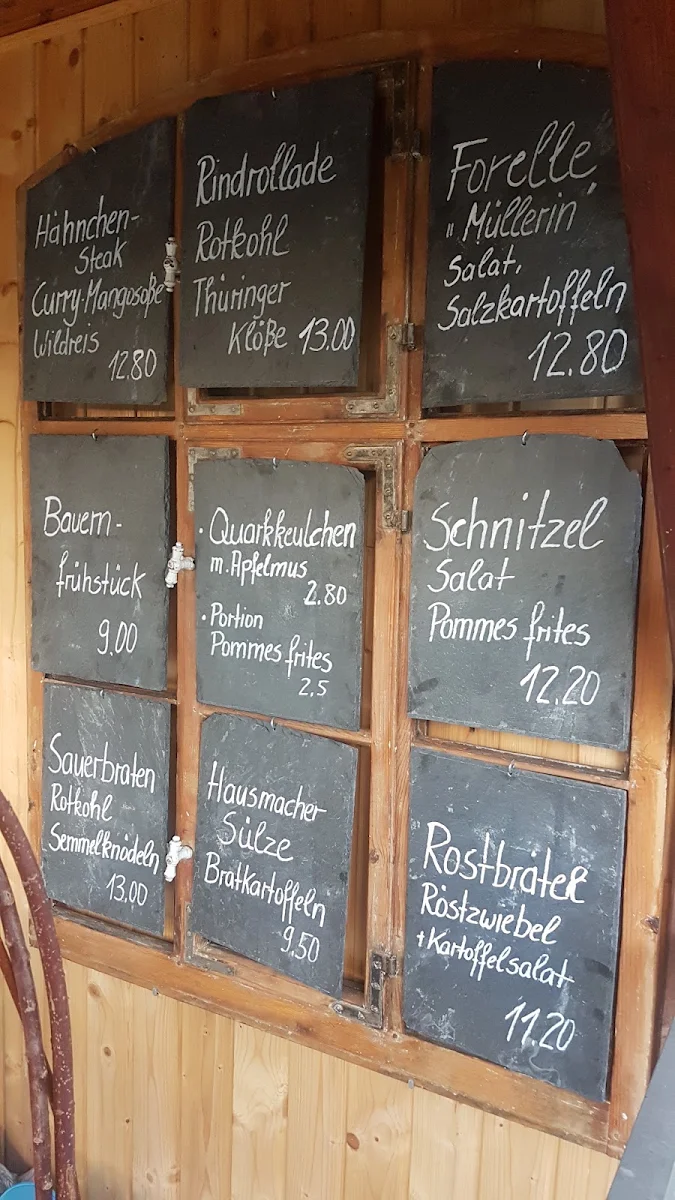 Hähnchen-
Steak
Curry-Mangosoße
Wildreis
12.80
Rindrollade
Rotkohl
Thüringer
Klöße 13.00
Forelle
"Müllerin"
Salat,
Salzkartoffeln
12.80
Bauern-
frühstück
9.00
· Quarkkeulchen
m. Apfelmus
2.80
· Portion
Pommes frites
2,5
Schnitzel
Salat
Pommes frites
12.20
Sauerbraten
Rotkohl
Semmelknödeln
13.00
Hausmacher
Sülze
Bratkartoffeln
9.50
Rostbrätel
Röstzwiebel
+Kartoffelsalat
11.20